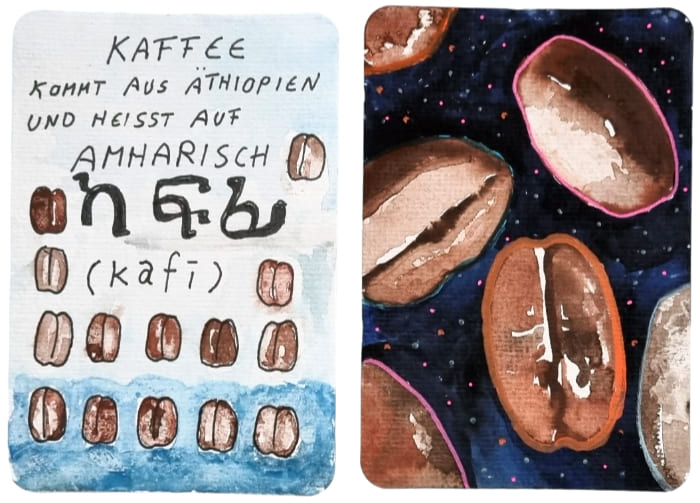 KAFFEE
KOMMT AUS ÄTHIOPIEN
UND HEISST AUF
AMHARISCH
ካፍፊ
(kafī)